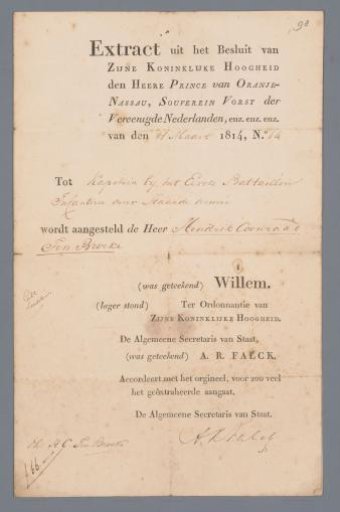 90
Extract uit het Besluit van
Zijne Koninklijke Hoogheid
den Heere Prince van Oranje-
Nassau, Souverein Vorst der
Vereenigde Nederlanden, enz. enz. enz.
van den Maart 1814, N.° 14
Tot Kapitein by het Eerste Bataillon
Infanterie
wordt aangesteld de Heer Hendrik Coenraad
Ten Broeke
(was geteekend) Willem.
(lager stond) Ter Ordonnantie van
Zijne Koninklijke Hoogheid.
De Algemeene Secretaris van Staat,
(was geteekend) A. R. FALCK.
Accordeert met het orgineel, voor zoo veel
het geëxtraheerde aangaat.
De Algemeene Secretaris van Staat.
A R Falck
166